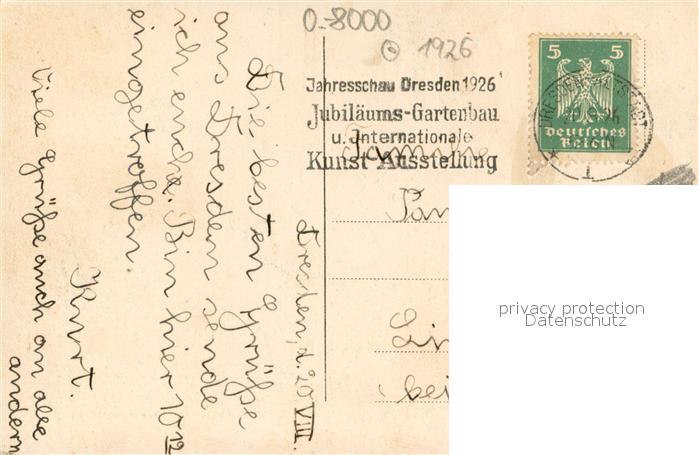 0-8000
© 1926
Jahresschau Dresden 1926
Jubiläums-Gartenbau
u. Internationale
Kunst-Ausstellung
5 5
Deutsches
Reich
1
Familie
bei
privacy protection
Datenschutz
Dresden, d. 20 VIII.
Die besten Grüße
aus Dresden sende
ich euche. Bin hier 10 12
eingetroffen.
Kurt.
Viele Grüße auch an alle
andern